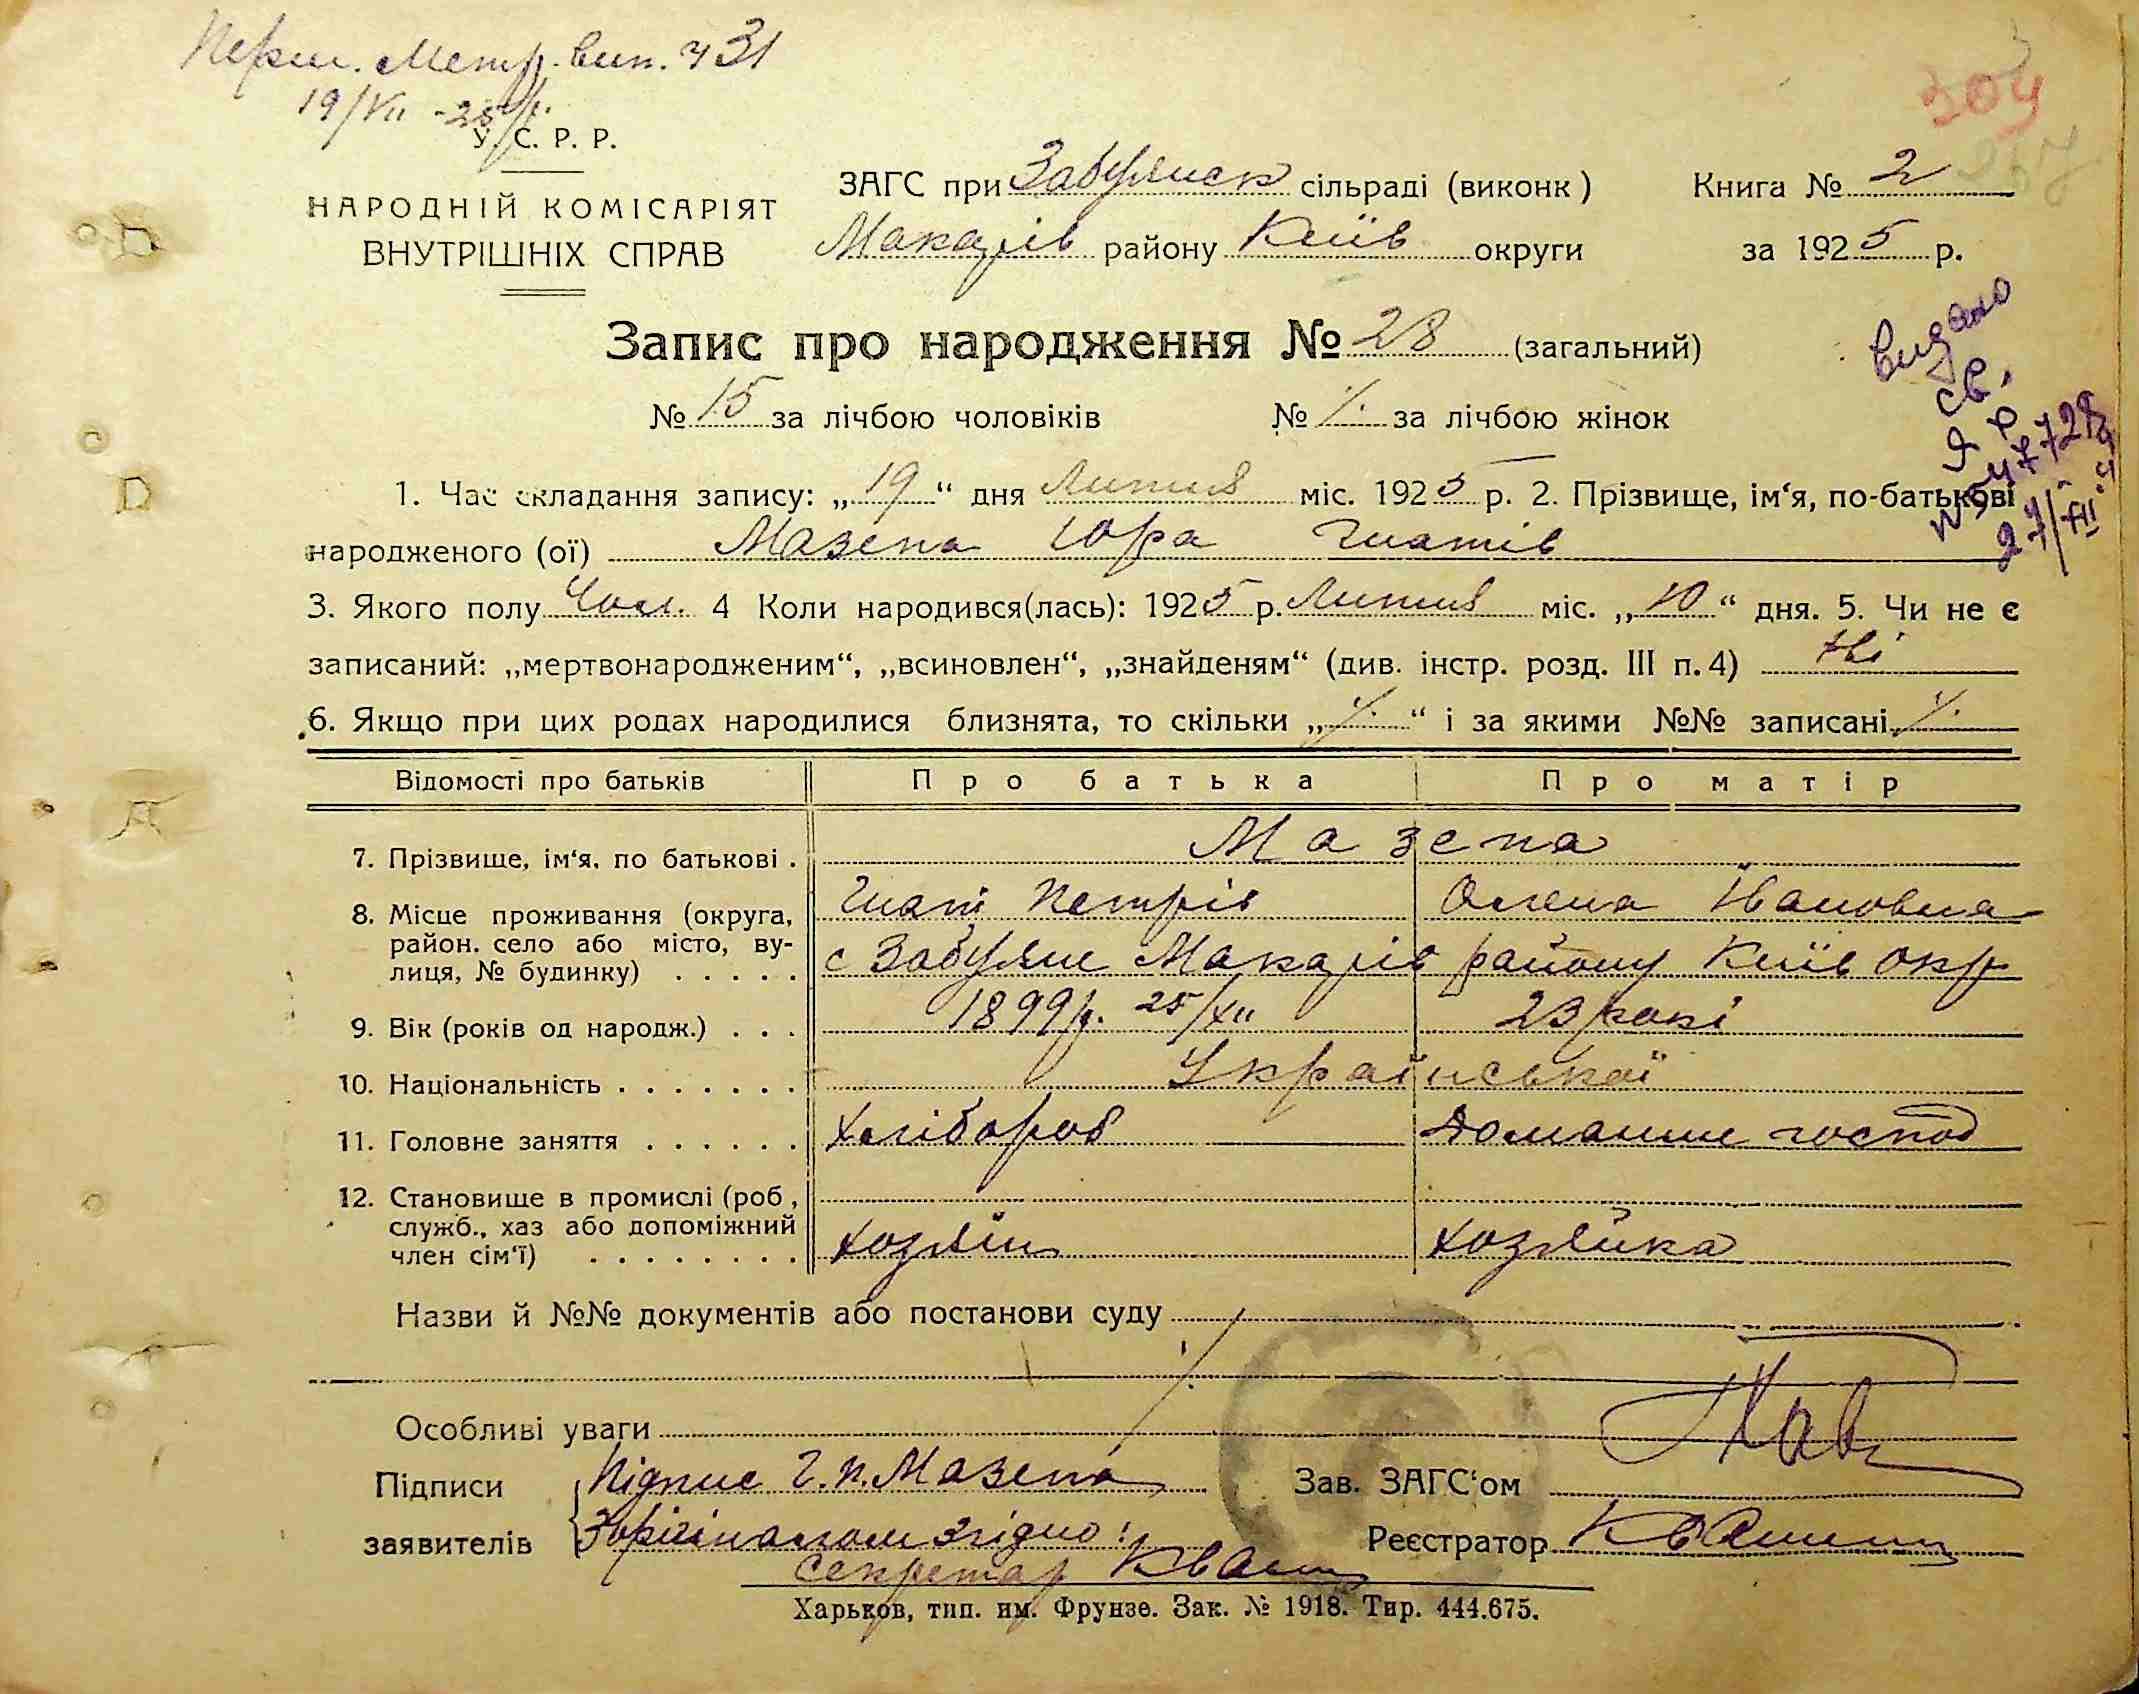 Перш. Метр. вип. ч 31
19/VII - 25 р.
У. С. Р. Р.
НАРОДНІЙ КОМІСАРІЯТ
ВНУТРІШНІХ СПРАВ
ЗАГС при Забуянск сільраді (виконк)
Макарів району Київ округи
Книга № 2
за 1925 р.
304
257
Запис про народження № 28 (загальний)
№ 15 за лічбою чоловіків № ·/. за лічбою жінок
видано
св.
Я Р
27/VII
1. Час складання запису: „19“ дня Липня міс. 1925 р. 2. Прізвище, ім‘я, по-батькові
народженого (ої) Мазепа Юра Гнатів
3. Якого полу Чол. 4 Коли народився(лась): 1925 р. Липня міс. „10“ дня. 5. Чи не є
записаний: „мертвонародженим“, „всиновлен“, „знайденям“ (див. інстр. розд. III п. 4) Ні
6. Якщо при цих родах народилися близнята, то скільки „·/.“ і за якими №№ записані ·/.
Відомості про батьків Про батька Про матір
7. Прізвище, ім‘я, по батькові . Мазепа
Гнат Петрів Олена Івановна
8. Місце проживання (округа,
район, село або місто, ву-
лиця, № будинку) . . . . . с Забуяне Макарів району Київ окр
9. Вік (років од народж.) . . . 1899 р. 25/XII 23 рокі
10. Національність . . . . . . . Української
11. Головне заняття . . . . . . Хлібороб Домашне господ
12. Становище в промислі (роб,
служб., хаз або допоміжний
член сім‘ї) . . . . . . . . хозяїн хозяйка
Назви й №№ документів або постанови суду
·/.
Особливі уваги
Підписи
заявителів
Підпис Г. П. Мазепа
З орігіналом згідно:
секретар Кваш
Зав. ЗАГС‘ом
Реєстратор
Харьков, тип. им. Фрунзе. Зак. № 1918. Тир. 444.675.